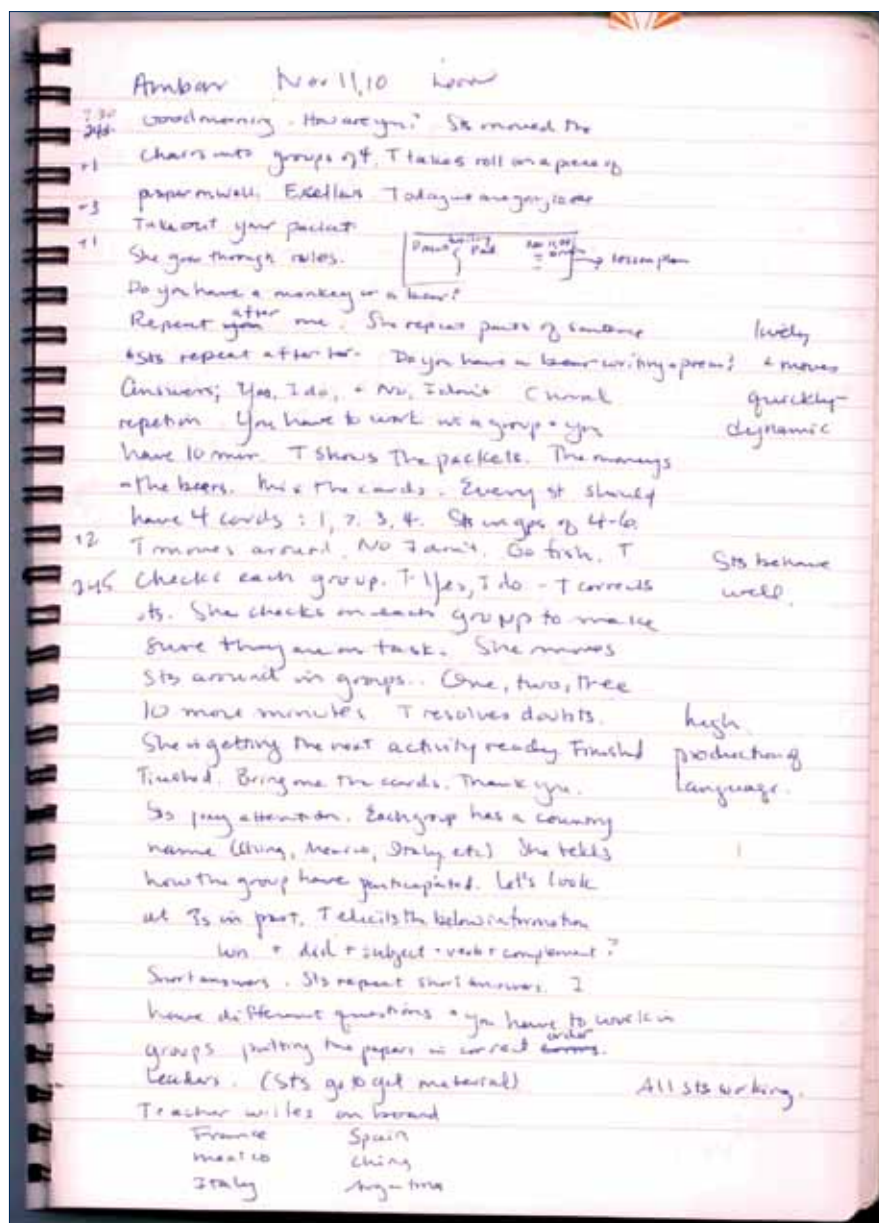 Ambar Nov 11, 10
Good morning. How are you? Sts moved the
245
+1 chairs into groups of 4. T takes roll on a piece of
paper on wall. Excellent. Today we are going to
+3
Take out your packet
+1
She goes through rules. → lesson plan
Do you have a monkey or a bear?
Repeat after me. She repeats parts of sentence lively
+ sts repeat after her. Do you have a bear writing a poem? + moves
Answers; Yes, I do, + No, I don't Choral quickly
repetion You have to work in a group + you dynamic
have 10 min. T shows the packets. The moneys
+ the bears. Mix the cards. Every st should
have 4 cards: 1, 2, 3, 4. Sts in gps of 4-6.
+2 T moves around. No I don't. Go fish. T Sts behave
245 Checks each group. T- Yes, I do - T corrects well.
sts. She checks on each group to make
sure they are on task. She moves
sts around in groups.. One, two, tree
10 more minutes T resolves doubts. high
She is getting the next activity ready Finished production of
Finished. Bring me the cards. Thank you. language.
Sts pay attention. Each group has a country
name (China, Mexico, Italy etc) She tells
how the group have participated. Let's look
at ?s in past. T elicits the below information
wh + did + subject + verb + complement?
Short answers. Sts repeat short answers. I
have different questions + you have to work in
groups putting the papers in correct order.
Leaders. (Sts go to get material) All sts working.
Teacher writes on board
France Spain
Mexico China
Italy Argentina